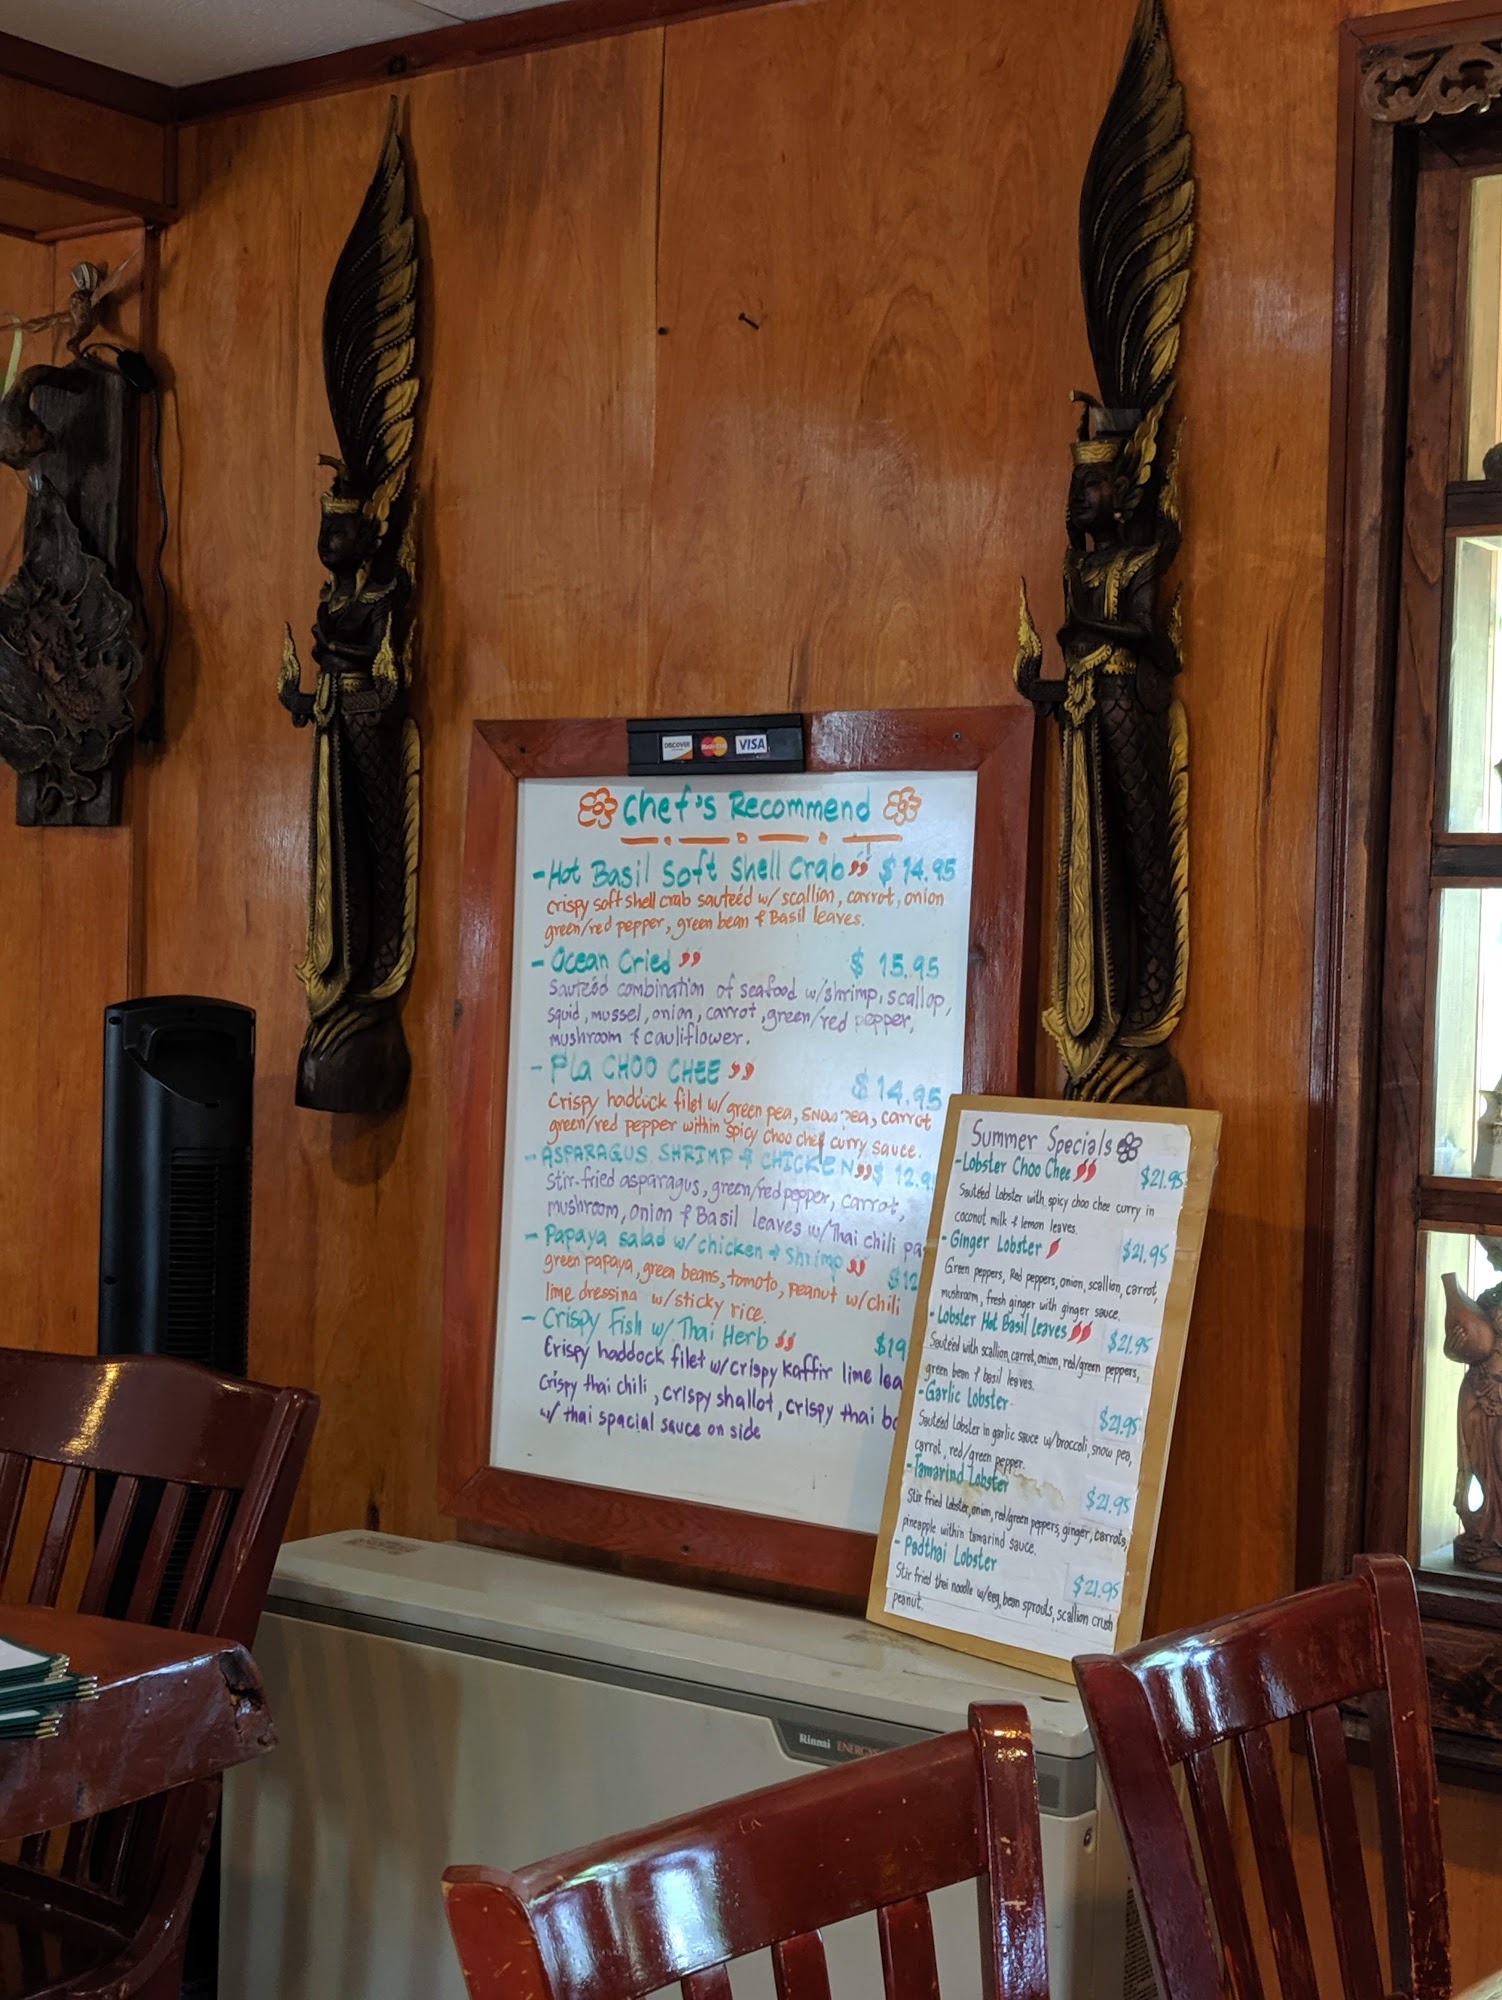 DISCOVER MasterCard VISA
Chef's Recommend
- Hot Basil Soft Shell Crab $14.95
crispy soft shell crab sauteéd w/ scallion, carrot, onion
green/red pepper, green bean & Basil leaves.
- Ocean Cried $ 15.95
Sauteéd combination of seafood w/shrimp, scallop,
squid, mussel, onion, carrot, green/red pepper,
mushroom & cauliflower.
- Pla CHOO CHEE $14.95
Crispy haddock filet w/ green pea, snow pea, carrot
green/red pepper within spicy choo chee curry sauce.
- ASPARAGUS SHRIMP & CHICKEN $ 12.9
Stir-fried asparagus, green/red pepper, carrot,
mushroom, onion & Basil leaves w/Thai chili pa
- Papaya salad w/ chicken & Shrimp $12
green papaya, green beans, tomoto, peanut w/chili
lime dressing w/sticky rice.
- Crispy Fish w/ Thai Herb $19
Crispy haddock filet w/ crispy kaffir lime lea
crispy thai chili, crispy shallot, crispy thai ba
w/ thai spacial sauce on side
Summer Specials
- Lobster Choo Chee $21.95
Sautéed lobster with spicy choo chee curry in
coconut milk & lemon leaves.
- Ginger Lobster $21.95
Green peppers, Red peppers, onion, scallion, carrot,
mushroom, fresh ginger with ginger sauce.
- Lobster Hot Basil Leaves $21.95
Sautéed with scallion, carrot, onion, red/green peppers,
green bean & basil leaves.
- Garlic Lobster $21.95
Sautéed Lobster in garlic sauce w/broccoli, snow pea,
carrot, red/green pepper.
- Tamarind Lobster $21.95
Stir fried lobster, onion, red/green peppers, ginger, carrots,
pineapple within tamarind sauce.
- Padthai Lobster $21.95
Stir fried thai noodle w/egg, bean sprouts, scallion crush
peanut.
Rinnai ENERGY